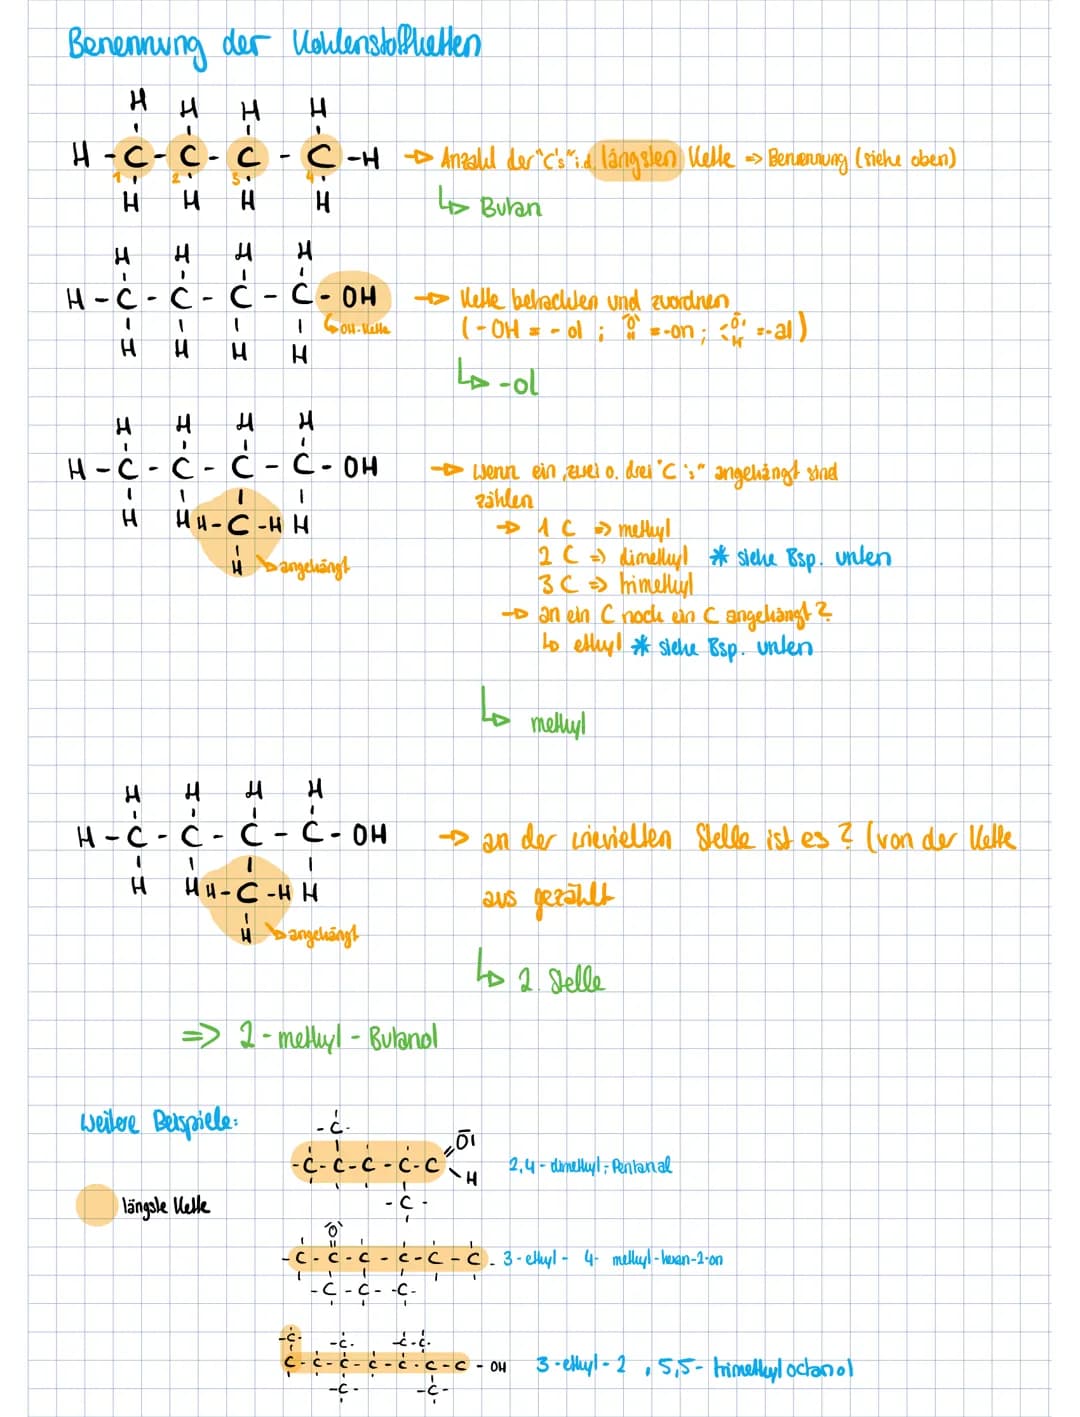 Benennung der Kohlenstoffketten
H H H H
H - C - C - C - C - H → Anzahl der "C's" i.d. längsten Kette => Benennung (siehe oben)
1 2 3 4
H H H H
↳ Butan
H H H H
H - C - C - C - C - OH → Kette betrachten und zuordnen
↳ OH-Kette (-OH = -ol ; O = -on ; O H = -al)
H H H H
↳ -ol
H H H H
H - C - C - C - C - OH → wenn ein, zwei o. drei "C's" angehängt sind
zählen
H H H - C - H H → 1 C => methyl
H angehängt 2 C => dimethyl * siehe Bsp. unten
3 C => trimethyl
→ an ein C noch ein C angehängt?
↳ ethyl * siehe Bsp. unten
↳ methyl
H H H H
H - C - C - C - C - OH → an der wievielten Stelle ist es? (von der Kette
H H H - C - H H aus gezählt
H angehängt
↳ 2. Stelle
=> 2-methyl-Butanol
weitere Beispiele:
- C -
O
- C - C - C - C - C H 2,4-dimethyl-Pentanal
längste Kette - C -
O
- C - C - C - C - C - C - 3-ethyl- 4- methyl-hexan-2-on
- C - C - - C -
- C - - C - - C - C -
C - C - C - C - C - C - C - OH 3-ethyl-2, 5,5-trimethyl octanol
- C - - C -